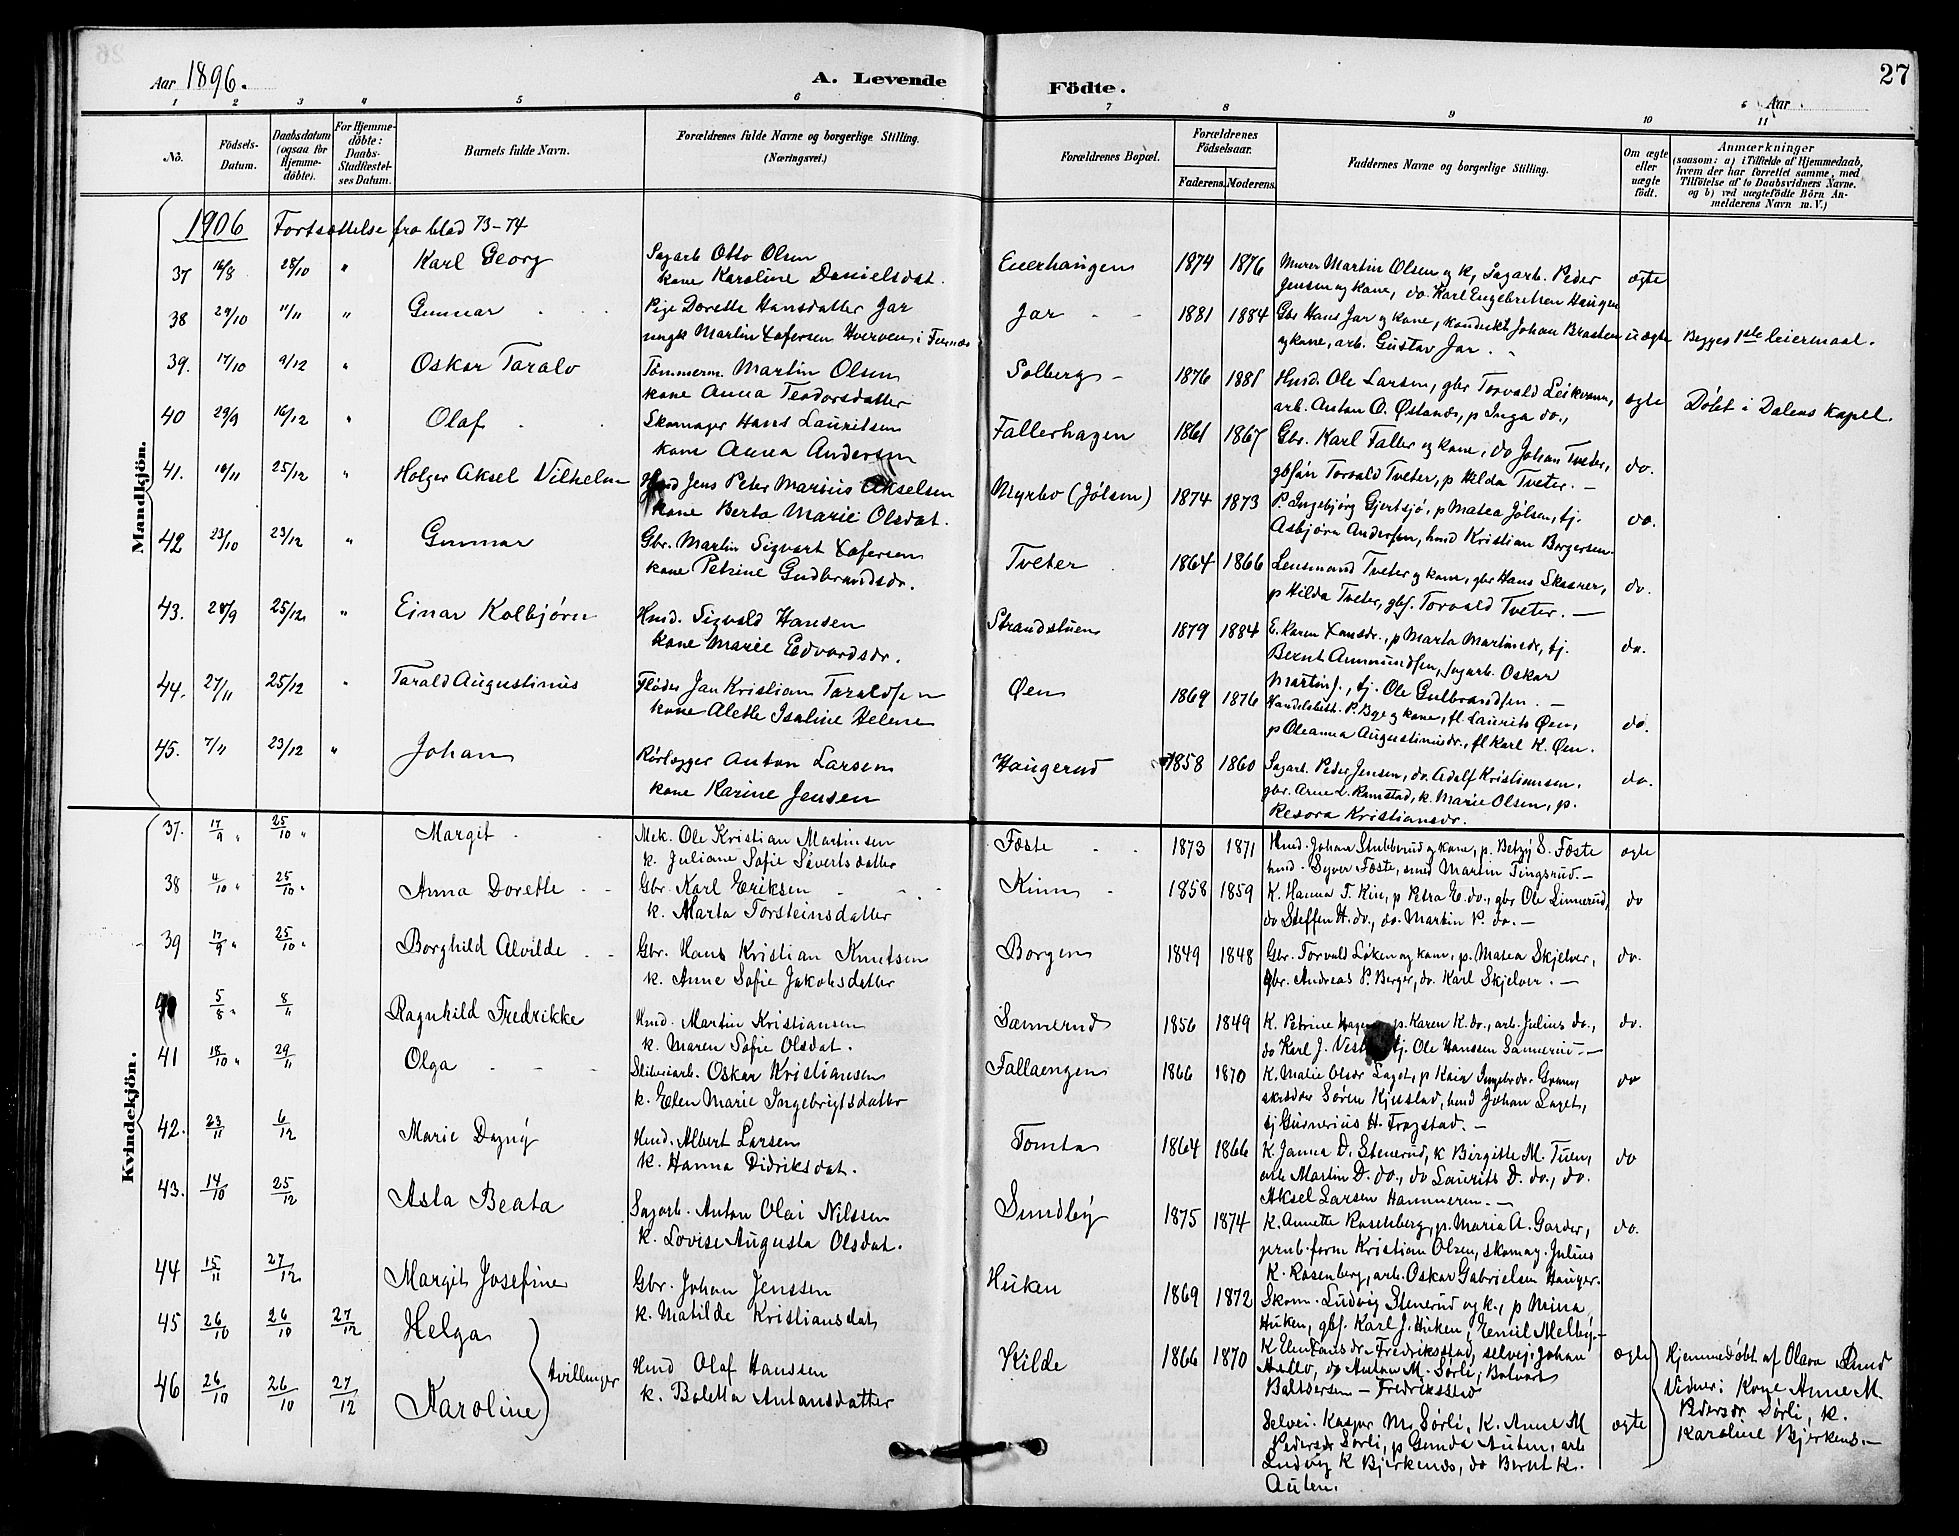 Aar 1896.
A. Levende Födte.
27
Aar
1 2 3 4 5 6 7 8 9 10 11
No. Födsels-Datum. Daabsdatum (ogsaa for Hjemmedöbte). For Hjemmedöbte: Daabs-Stadfæstelses Datum. Barnets fulde Navn. Forældrenes fulde Navne og borgerlige Stilling. (Næringsvei.) Forældrenes Bopæl. Forældrenes Födselsaar. Faderens. Moderens. Faddernes Navne og borgerlige Stilling. Om ægte eller uægte födt. Anmærkninger (saasom: a) i Tilfælde af Hjemmedaab, hvem der har forrettet samme, med Tilföielse af to Daabsvidners Navne, og b) ved uægtefödte Börn Anmelderens Navn m. V.)
Mandkjön.
1906 Fortsættelse fra blad 73-74
37 16/8 28/10 " Karl Georg Sagarb Otto Olsen 1874 1876 Murer Martin Olsen og k, Sagarb. Peder ægte
kone Karoline Danielsdat. Jensen og kone, do Karl Engebretsen Haugen
38 29/10 11/11 " Gunnar Pige Dorette Hansdatter Jar Jar 1881 1884 Gbr Hans Jar og kone, Johan Braaten uægte Begges 1ste leiermaal.
ungk Martin i og kone, arb. Gustav Jar.
39. 17/10 9/12 " Oskar Taralv Tømmerm. Martin Olsen Solberg 1876 1881 Husd. Ole Larsen, gbr Torvald Leikvann, ægte Døbt i Dalens kapel.
kone Anna Teodorsdatter arb. Anton O. Østanes, p Inga do.,
40 29/9 16/12 " Olaf Skomager Hans Lauritsen Fallerhagen 1861 1867 Gbr. Karl Faller og kone, do Johan Tveter, do.
kone Anna Andersen gbsøn Torvald Tveter, p Hilda Tveter.
41. 10/11 25/12 " Holger Aksel Vilhelm Husd Jens Peter Marius Akselsen Myrbo (Jølsen) 1874 1873 P. Ingebjørg Gjertsjø, p Matea Jølsen, tj. do.
kone Berta Marie Olsdat. Asbjørn Andersen, husd Kristian Borgersen.
42 23/10 23/12 " Gunnar Gbr. Martin Sigvart Tveter 1864 1866 Lensmand Tveter og kone, gbr Hans Skaarer, do.
kone Petrine Gudbrandsdr. p Hilda Tveter, gbs. Torvald Tveter.
43. 28/9 25/12 " Einar Kolbjørn Husd. Sigvald Hansen Strandstuen 1879 1884 E. Karen Hansdr., p Marta Martinsdr, tj. do.
kone Marie Edvardsdr. Bernt Ammundsen, sagarb. Oskar
Martins., tj. Ole Gulbrandsen.
44. 27/11 25/12 " Tarald Augustinus Fløder Jan Kristian Taraldsen Øen 1869 1876 Handelsbett. P. Bye og kone, fl. Laurits Øen, do.
kone Alette Isaline Helene p Oleanna Augustinusdr., fl Karl K. Øen.
45. 7/11 23/12 " Johan Rørlægger Anton Larsen Haugerud 1858 1860 Sagarb. Peder Jensen, do. Adolf Kristiansen, do.
kone Karine Jensen gbr. Arne L. Ramstad, k. Marie Olsen, p.
Resora Kristiansdr.
Kvindekjön.
37. 17/9 " 25/10 " Margit Mek. Ole Kristian Martinsen Føste 1873 1871 Husd. Johan Stubberud og kone, p. Betzy S. Føste ægte
k. Juliane Sofie Sivertsdatter husd. Syver Føste, smed Martin Tingsrud.
38 4/10 " 25/10 " Anna Dorette Gbr. Karl Eriksen Kinn 1858 1859 K. Hanna T. Kin, p Petra E. do., gbr Ole Linnerud, do
k. Marta Torsteinsdatter do Steffen H. do., do. Martin P. do.
39 17/9 " 25/10 " Borghild Alvilde Gbr. Hans Kristian Knutsen Borgen 1849 1848 Gbr. Torvald Løken og kone, p. Matea Skjelver, do.
k. Anne Sofie Jakobsdatter Gbr. Andreas P. Berger, do. Karl Skjelver.
40 5/8 " 8/11 Ragnhild Fredrikke Husd. Martin Kristiansen Sannerud 1856 1849 K. Petrine p. Karen K. do., arb. Julius do., do.
k. Maren Sofie Olsdat. do Karl J. tj. Ole Hanssen Sannerud.
41 18/10 " 29/11 Olga Sliberiarb. Oskar Kristiansen Fallaengen 1866 1870 K. Matie Olsdr Laget, p Kaia Ingebrdr. do
k. Elen Marie Ingebrigtsdatter Søren Kjusstad, husd Johan Laget,
tj Gunerius H. Frogstad.
42. 23/11 6/12 Marie Dagny Husd. Albert Larsen Tomta 1864 1866 K. Janna D. Stenerud, k Birgitte M. Tuen, do
k. Hanna Didriksdat. arb Martin D. do., do Laurits D. do., do.
Aksel Larsen Hammeren.
43. 14/10 25/12 Asta Beata Sagarb. Anton Olai Nilssen Sundby 1875 1874 K. Annette p. Maria A. Garder, do.
k. Lovise Augusta Olsdat. jernb. form Kristian Olsen, skomag. Julius
K. Rosenberg, arb. Oskar Gabrielsen Hauger.
44 15/11 27/12 Margit Josefine Gbr. Johan Jenssen Huken 1869 1872 Skom. Ludvig Stenerud og k., p Mina
k. Matilde Kristiansdat Huken, gbs. Karl J. Huken, Emil Melby.
45 26/10 26/10 27/12 Helga Kilde 1866 1870 Fredriksstad, selvej. Johan ægte Hjemmedøbt af Olava Lund
Tvillinger Husd Olaf Hanssen do Anton M. Sørli, Vidner: Kone Anne M.
46 26/10 26/10 27/12 Karoline k. Boletta Antonsdatter Baltsersen - Fredriksstad Pedersdr Sørli, k.
Selvei. Kasper M. Sørli, K. Anne M ægte Karoline Bjerkenes.
Pedersdr Sørli, p Gunda Auten, arb
Ludvig K Bjerkenes, do Bernt K.
Auten.